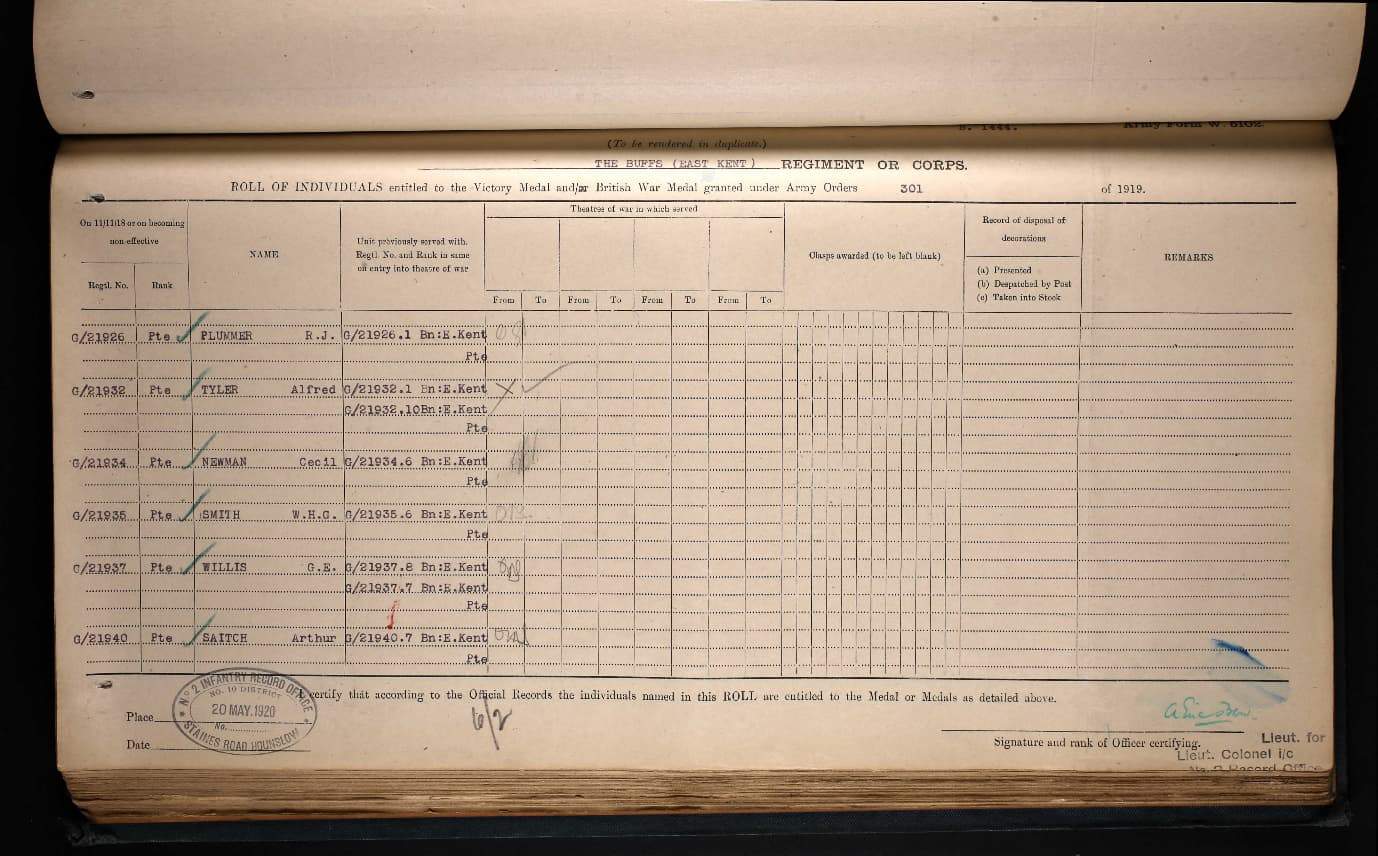 (To be rendered in duplicate.)
THE BUFFS (EAST KENT) REGIMENT OR CORPS.
ROLL OF INDIVIDUALS entitled to the Victory Medal and/or British War Medal granted under Army Orders 301 of 1919.
On 11/11/18 or on becoming non-effective
Regtl. No. Rank
NAME
Unit previously served with. Regtl. No. and Rank in same on entry into theatre of war
Theatres of war in which served
From To From To From To From To
Clasps awarded (to be left blank)
Record of disposal of decorations
(a) Presented
(b) Despatched by Post
(c) Taken into Stock
REMARKS
G/21926 Pte PLUMMER R.J. G/21926.1 Bn:E.Kent
Pte
G/21932 Pte TYLER Alfred G/21932.1 Bn:E.Kent
G/21932.10Bn:E.Kent
Pte
G/21934 Pte NEWMAN Cecil G/21934.6 Bn:E.Kent
Pte
G/21935 Pte SMITH W.H.G. G/21935.6 Bn:E.Kent
Pte
G/21937 Pte WILLIS G.E. G/21937.8 Bn:E.Kent
G/21937.7 Bn:E.Kent
Pte
G/21940 Pte SAITCH Arthur G/21940.7 Bn:E.Kent
Pte
I certify that according to the Official Records the individuals named in this ROLL are entitled to the Medal or Medals as detailed above.
Place
Date
No 2 INFANTRY RECORD OFFICE
NO. 10 DISTRICT
20 MAY.1920
No.
STAINES ROAD HOUNSLOW
6/2
Signature and rank of Officer certifying.
Lieut. for
Lieut. Colonel i/c